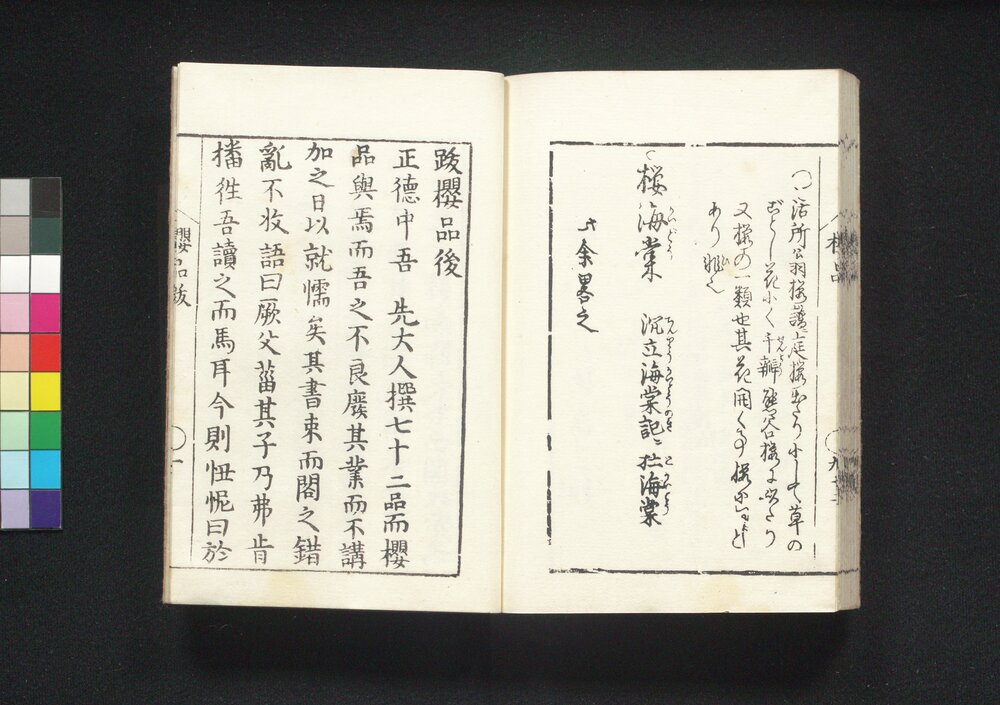 〇活所公羽桜譜庭桜あり小にして草の
ごとし花小く千瓣熊谷桜に出たり
又桜の一類也其花開く事桜ゟすこと
あり
桜海棠 沉立海棠記ニ 海棠
余畧之
櫻品
跋櫻品後
正德中吾 先大人撰七十二品而櫻
品與焉而吾之不良廢其業而不講
加之日以就懦矣其書束而閣之錯
亂不收語曰厥父菑其子乃弗肯
播徃吾讀之而馬耳今則忸怩曰於
櫻品跋
一